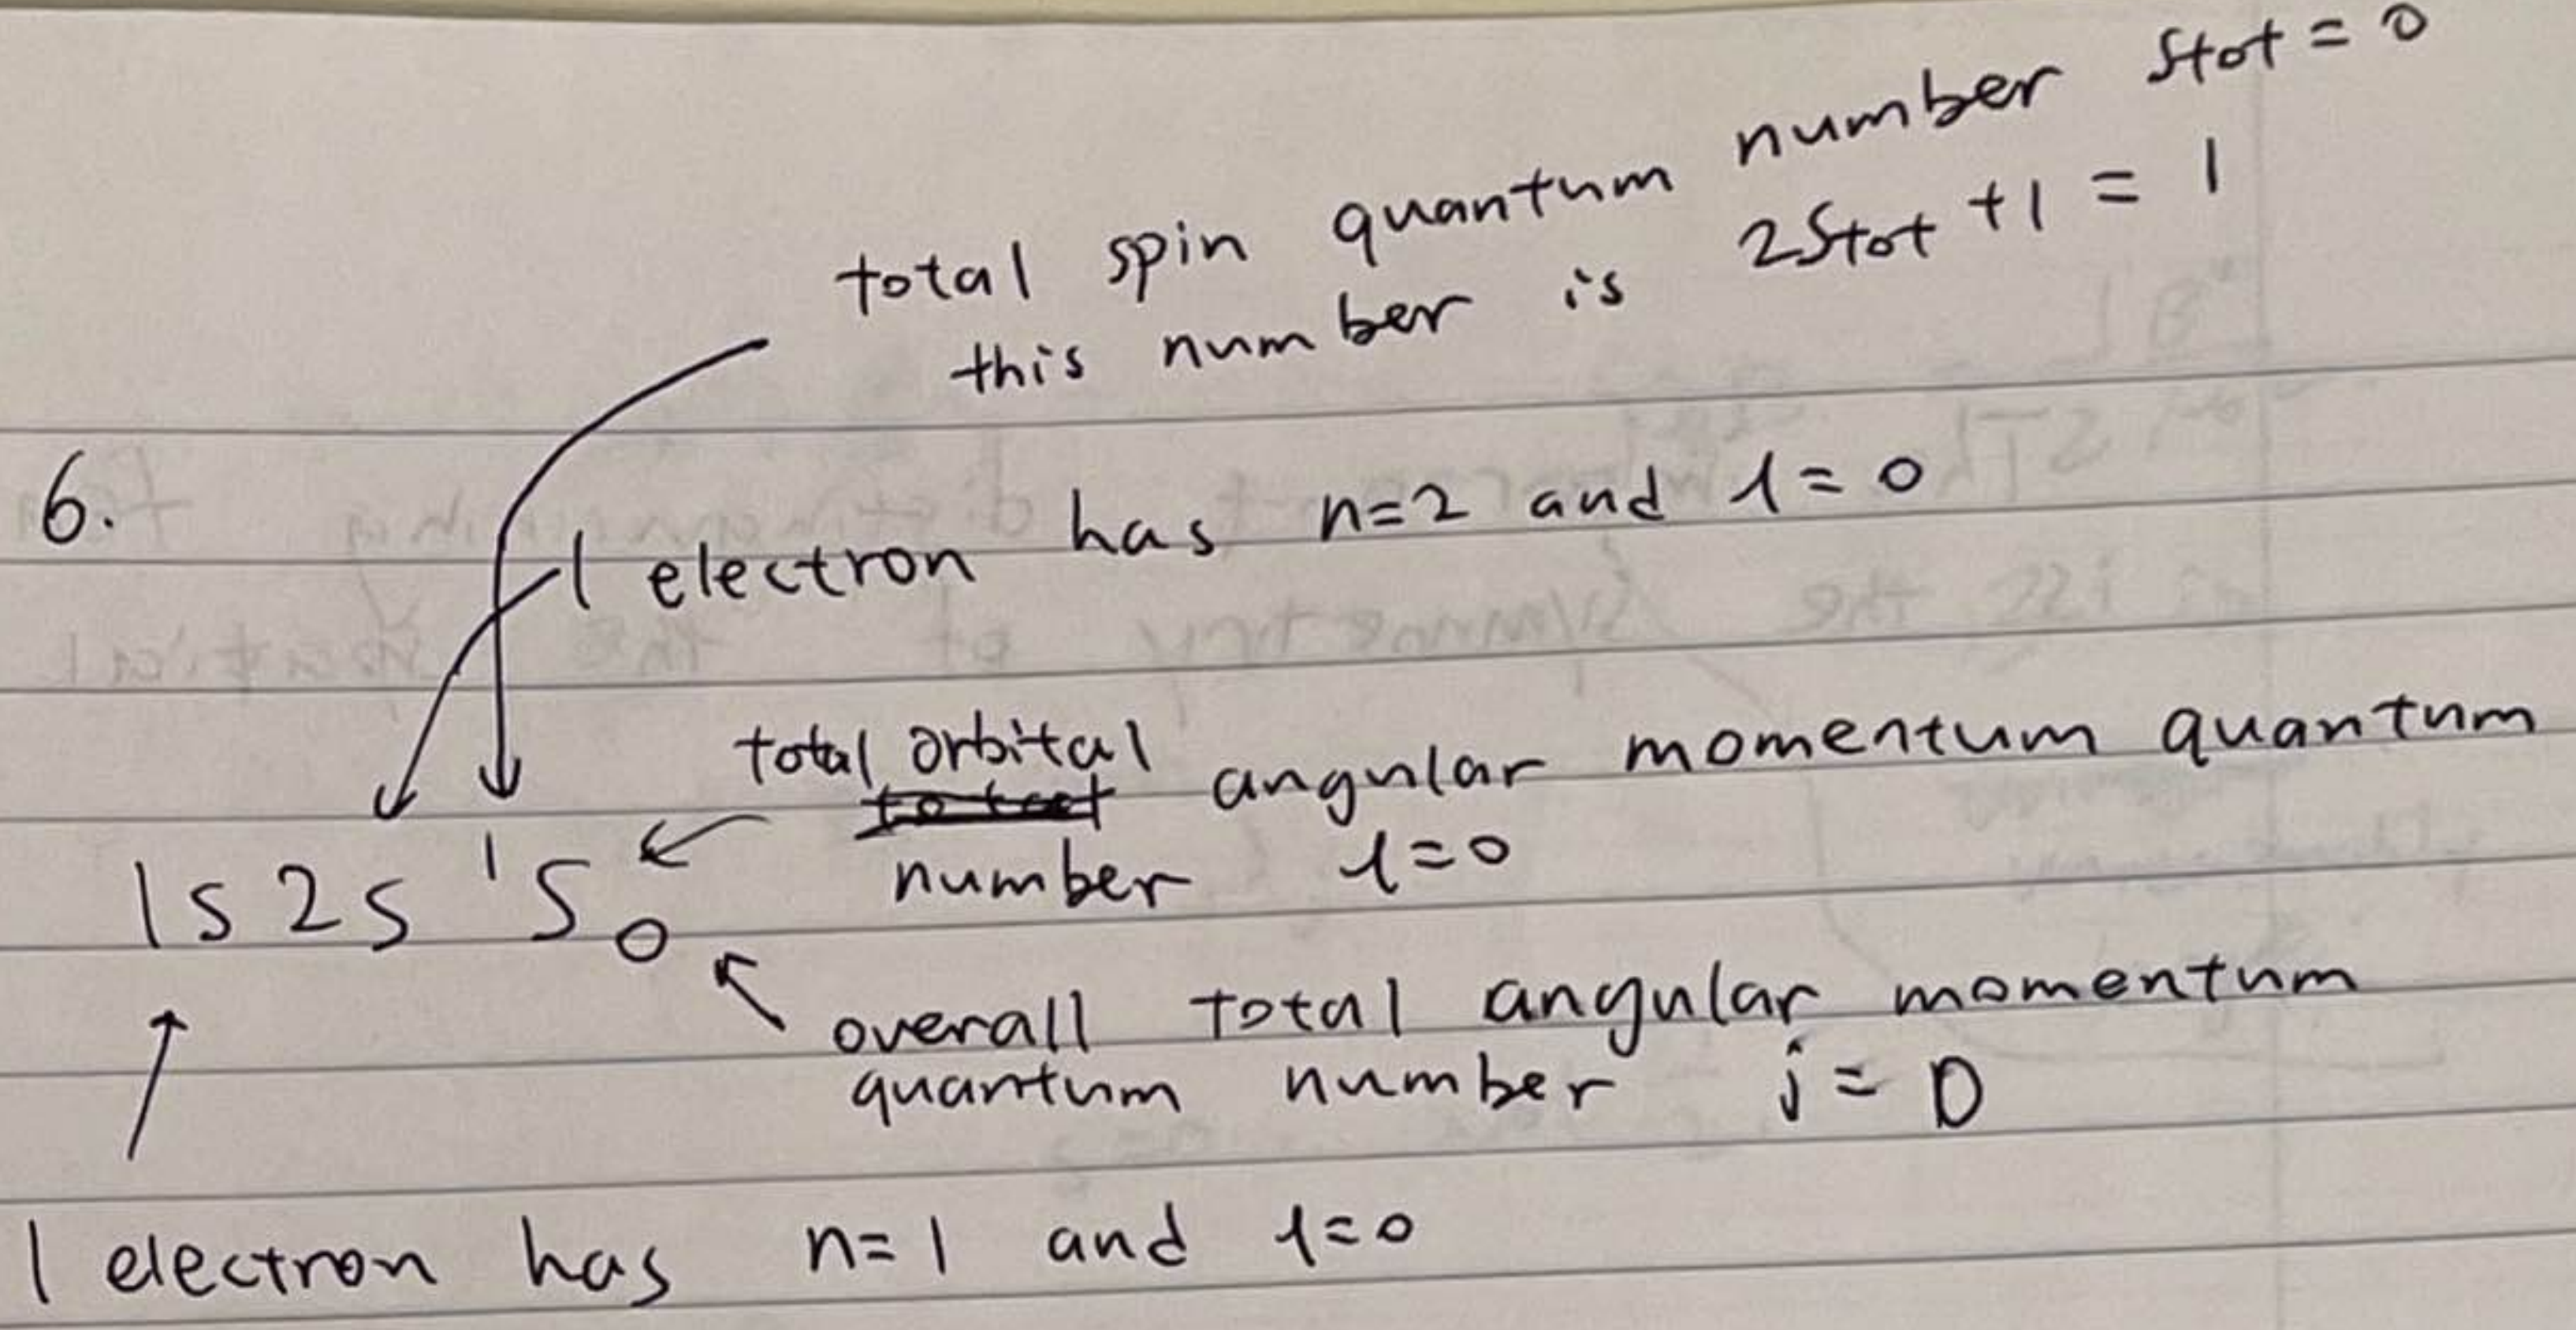 total spin quantum number Stot = 0
this number is 2Stot + 1 = 1
6.
1 electron has n=2 and l=0
total orbital angular momentum quantum
number l=0
1s 2s ¹S₀
overall total angular momentum
quantum number j = 0
1 electron has n=1 and l=0